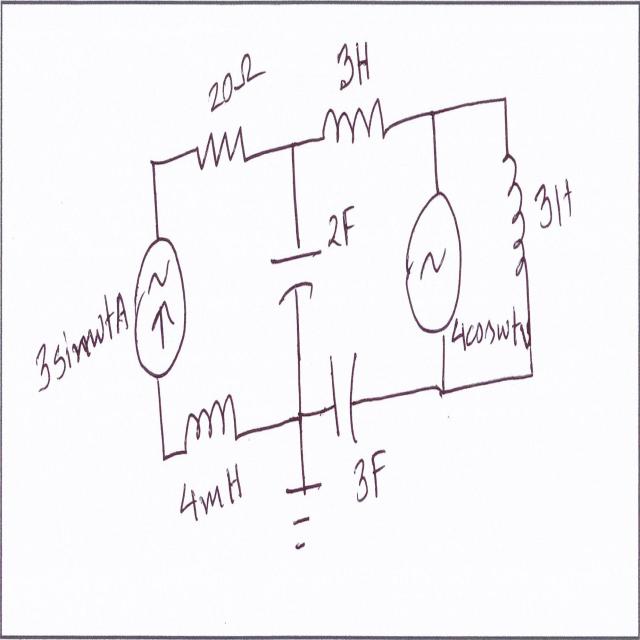 20Ω
3H
2F
3H
3sinωtA
4cosωtv
4mH
3F